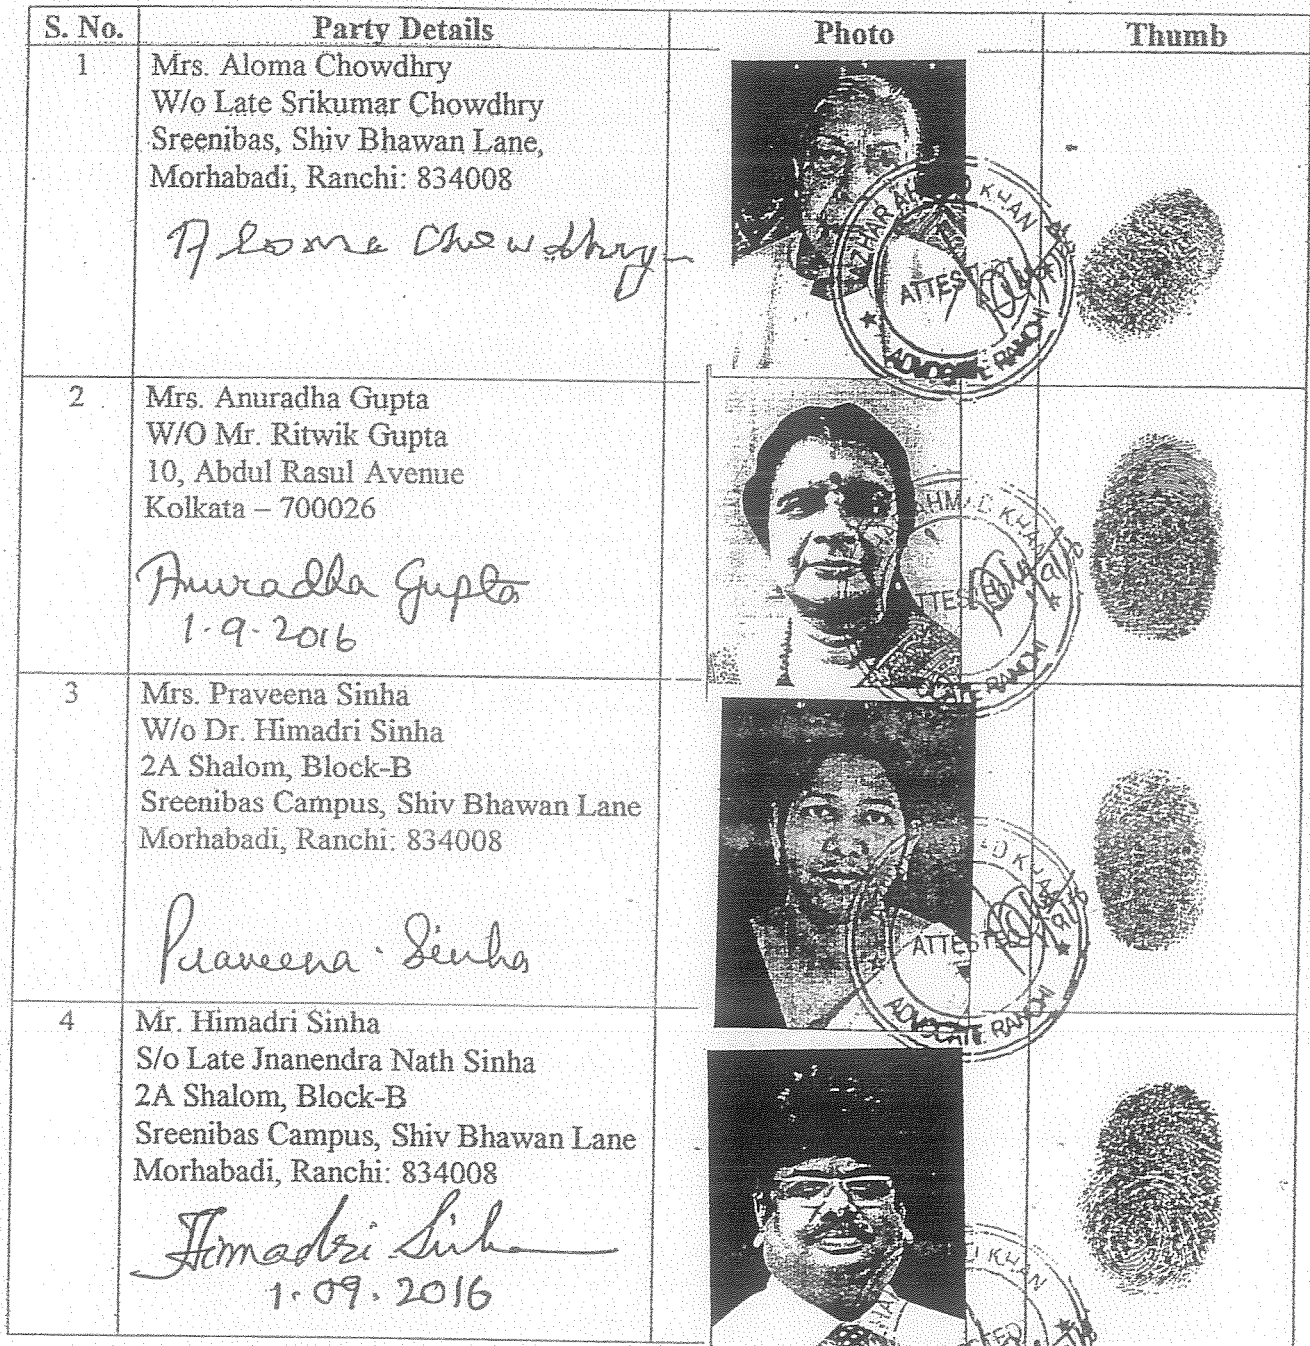 S. No. Party Details Photo Thumb
1 Mrs. Aloma Chowdhry
W/o Late Srikumar Chowdhry
Sreenibas, Shiv Bhawan Lane,
Morhabadi, Ranchi: 834008
Aloma Chowdhry
AZHAR AHMAD KHAN
ATTESTED
ADVOCATE RANCHI
2 Mrs. Anuradha Gupta
W/O Mr. Ritwik Gupta
10, Abdul Rasul Avenue
Kolkata – 700026
Anuradha Gupta
1-9-2016
AHMAD KHAN
ATTESTED
ADVOCATE RANCHI
3 Mrs. Praveena Sinha
W/o Dr. Himadri Sinha
2A Shalom, Block-B
Sreenibas Campus, Shiv Bhawan Lane
Morhabadi, Ranchi: 834008
Praveena Sinha
KHAN
ATTESTED
ADVOCATE RANCHI
4 Mr. Himadri Sinha
S/o Late Jnanendra Nath Sinha
2A Shalom, Block-B
Sreenibas Campus, Shiv Bhawan Lane
Morhabadi, Ranchi: 834008
Himadri Sinha
1.09.2016
KHAN